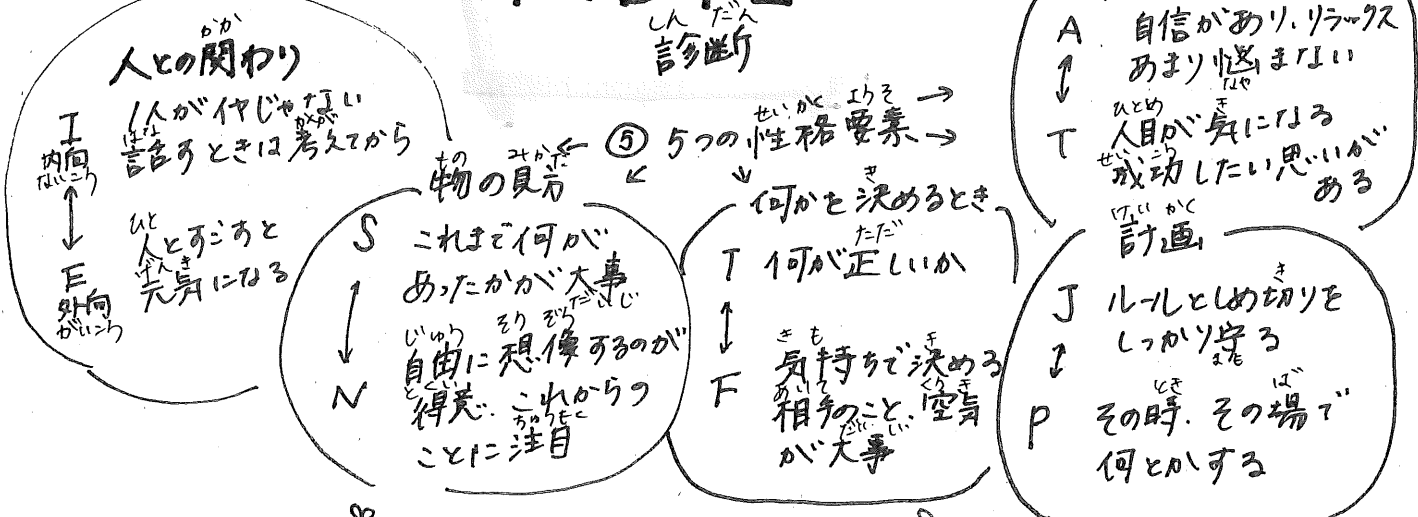 しん だん
診断
⑤ 5つの性格要素
せい かく ようそ
人との関わり
かか
I
内向
ないこう
1人がイヤじゃない
話すときは考えてから
はな
かんが
E
外向
がいこう
人とすごすと
ひと
元気になる
げんき
物の見方
もの みかた
S
これまで何が
あったかが大事
だいじ
N
自由に想像するのが
じゆう そうぞう
得意. これからの
とくい
ことに注目
ちゅうもく
何かを決めるとき
き
T
何が正しいか
ただ
F
気持ちで決める
き も き
相手のこと、空気
あいて くうき
が大事
だいじ
A
自信があり、リラックス
あまり悩まない
なや
T
人目が気になる
ひとめ き
成功したい思いが
せいこう
ある
計画
けい かく
J
ルールとしめ切りを
き
しっかり守る
まも
P
その時、その場で
とき ば
何とかする